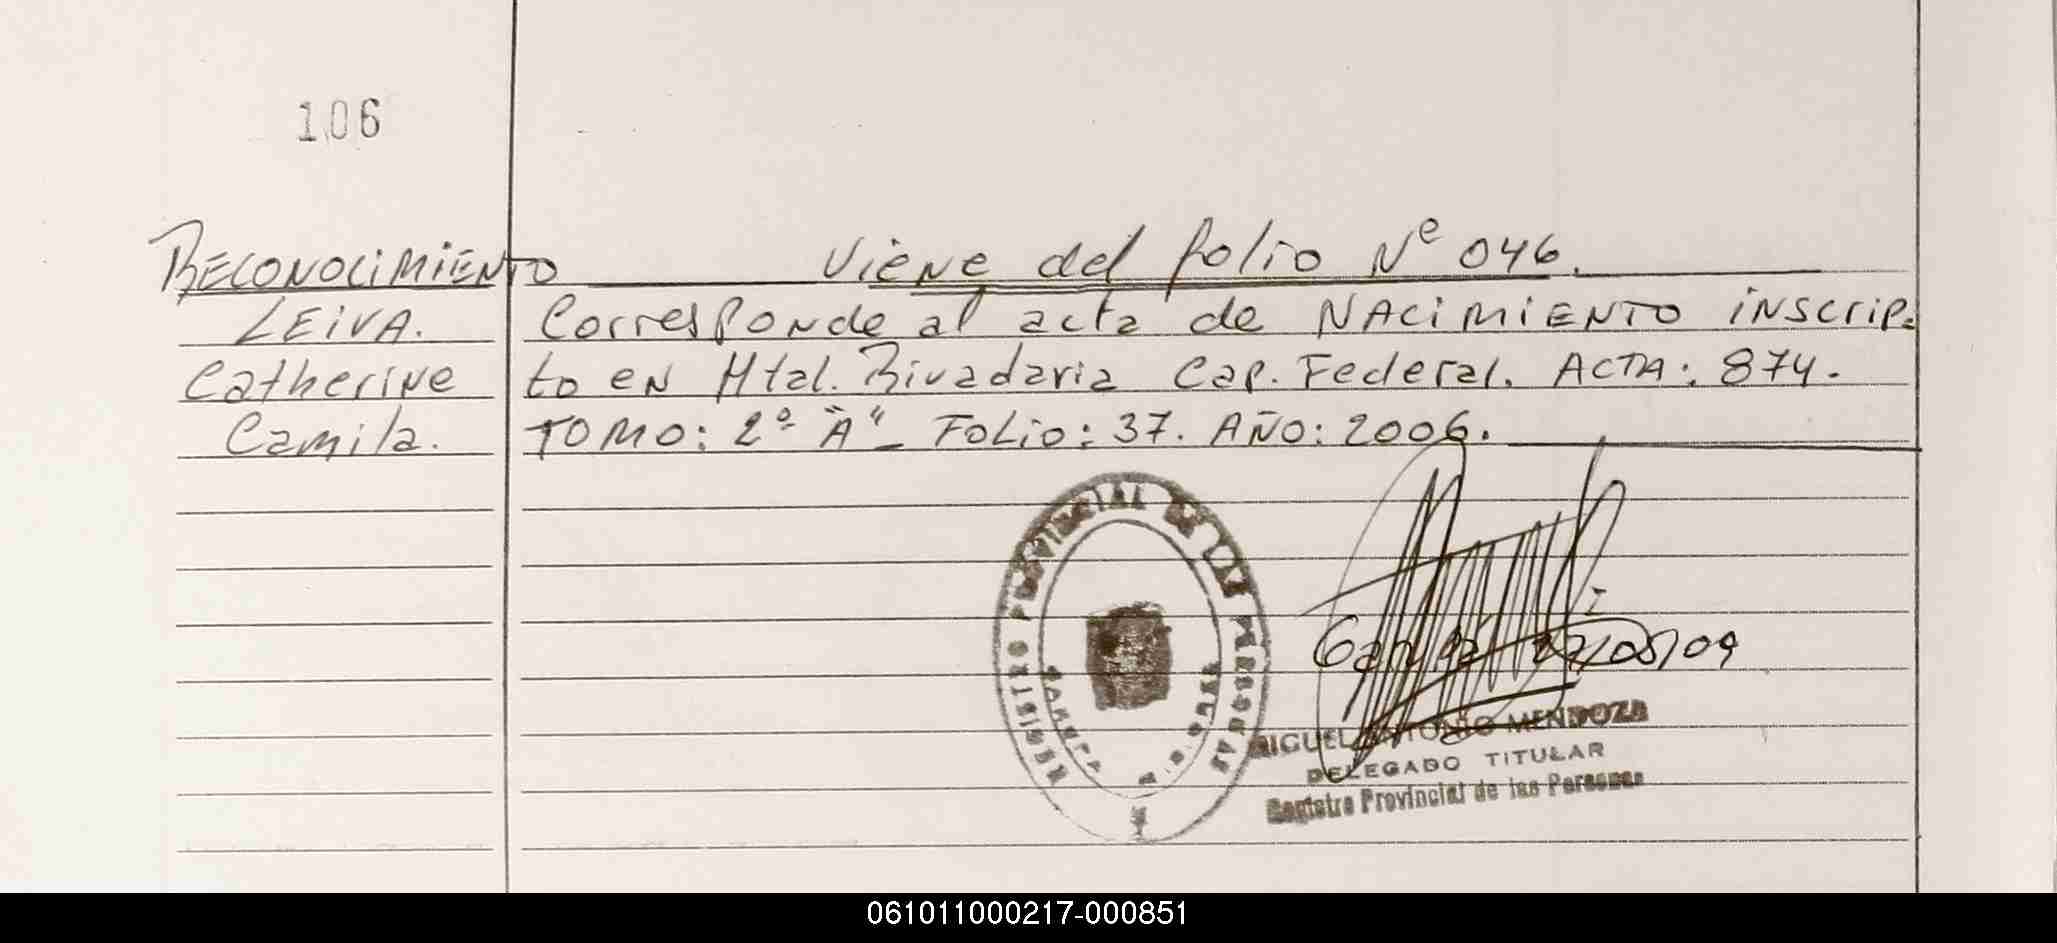 106
RECONOCIMIENTO
LEIVA.
Catherine
Camila.
Viene del folio Nº 046.
Corresponde al acta de NACIMIENTO inscrip-
to en Htal. Rivadavia Cap. Federal. ACTA: 874.
TOMO: 2º "A" - FOLIO: 37. AÑO: 2006.
REGISTRO PROVINCIAL DE LAS PERSONAS
/08/09
MIGUEL ANTONIO MENDOZA
DELEGADO TITULAR
Registro Provincial de las Personas
061011000217-000851